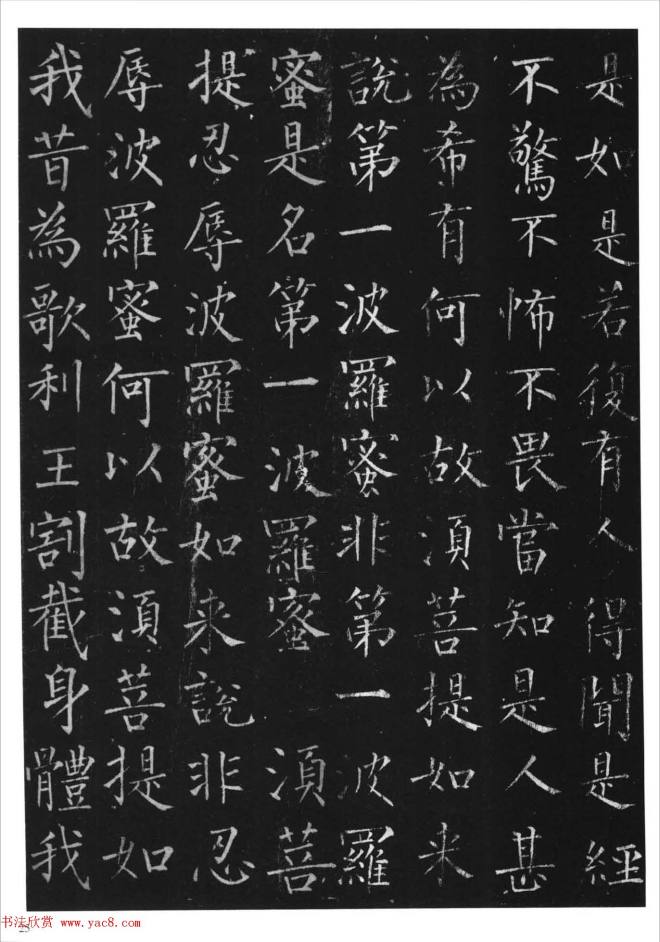 是如是若復有人得聞是經
不驚不怖不畏當知是人甚
為希有何以故湏菩提如来
說第一波羅蜜非第一波羅
蜜是名第一波羅蜜 湏菩
提忍辱波羅蜜如来說非忍
辱波羅蜜何以故湏菩提如
我昔為歌利王割截身體我
书法欣赏 www.yac8.com